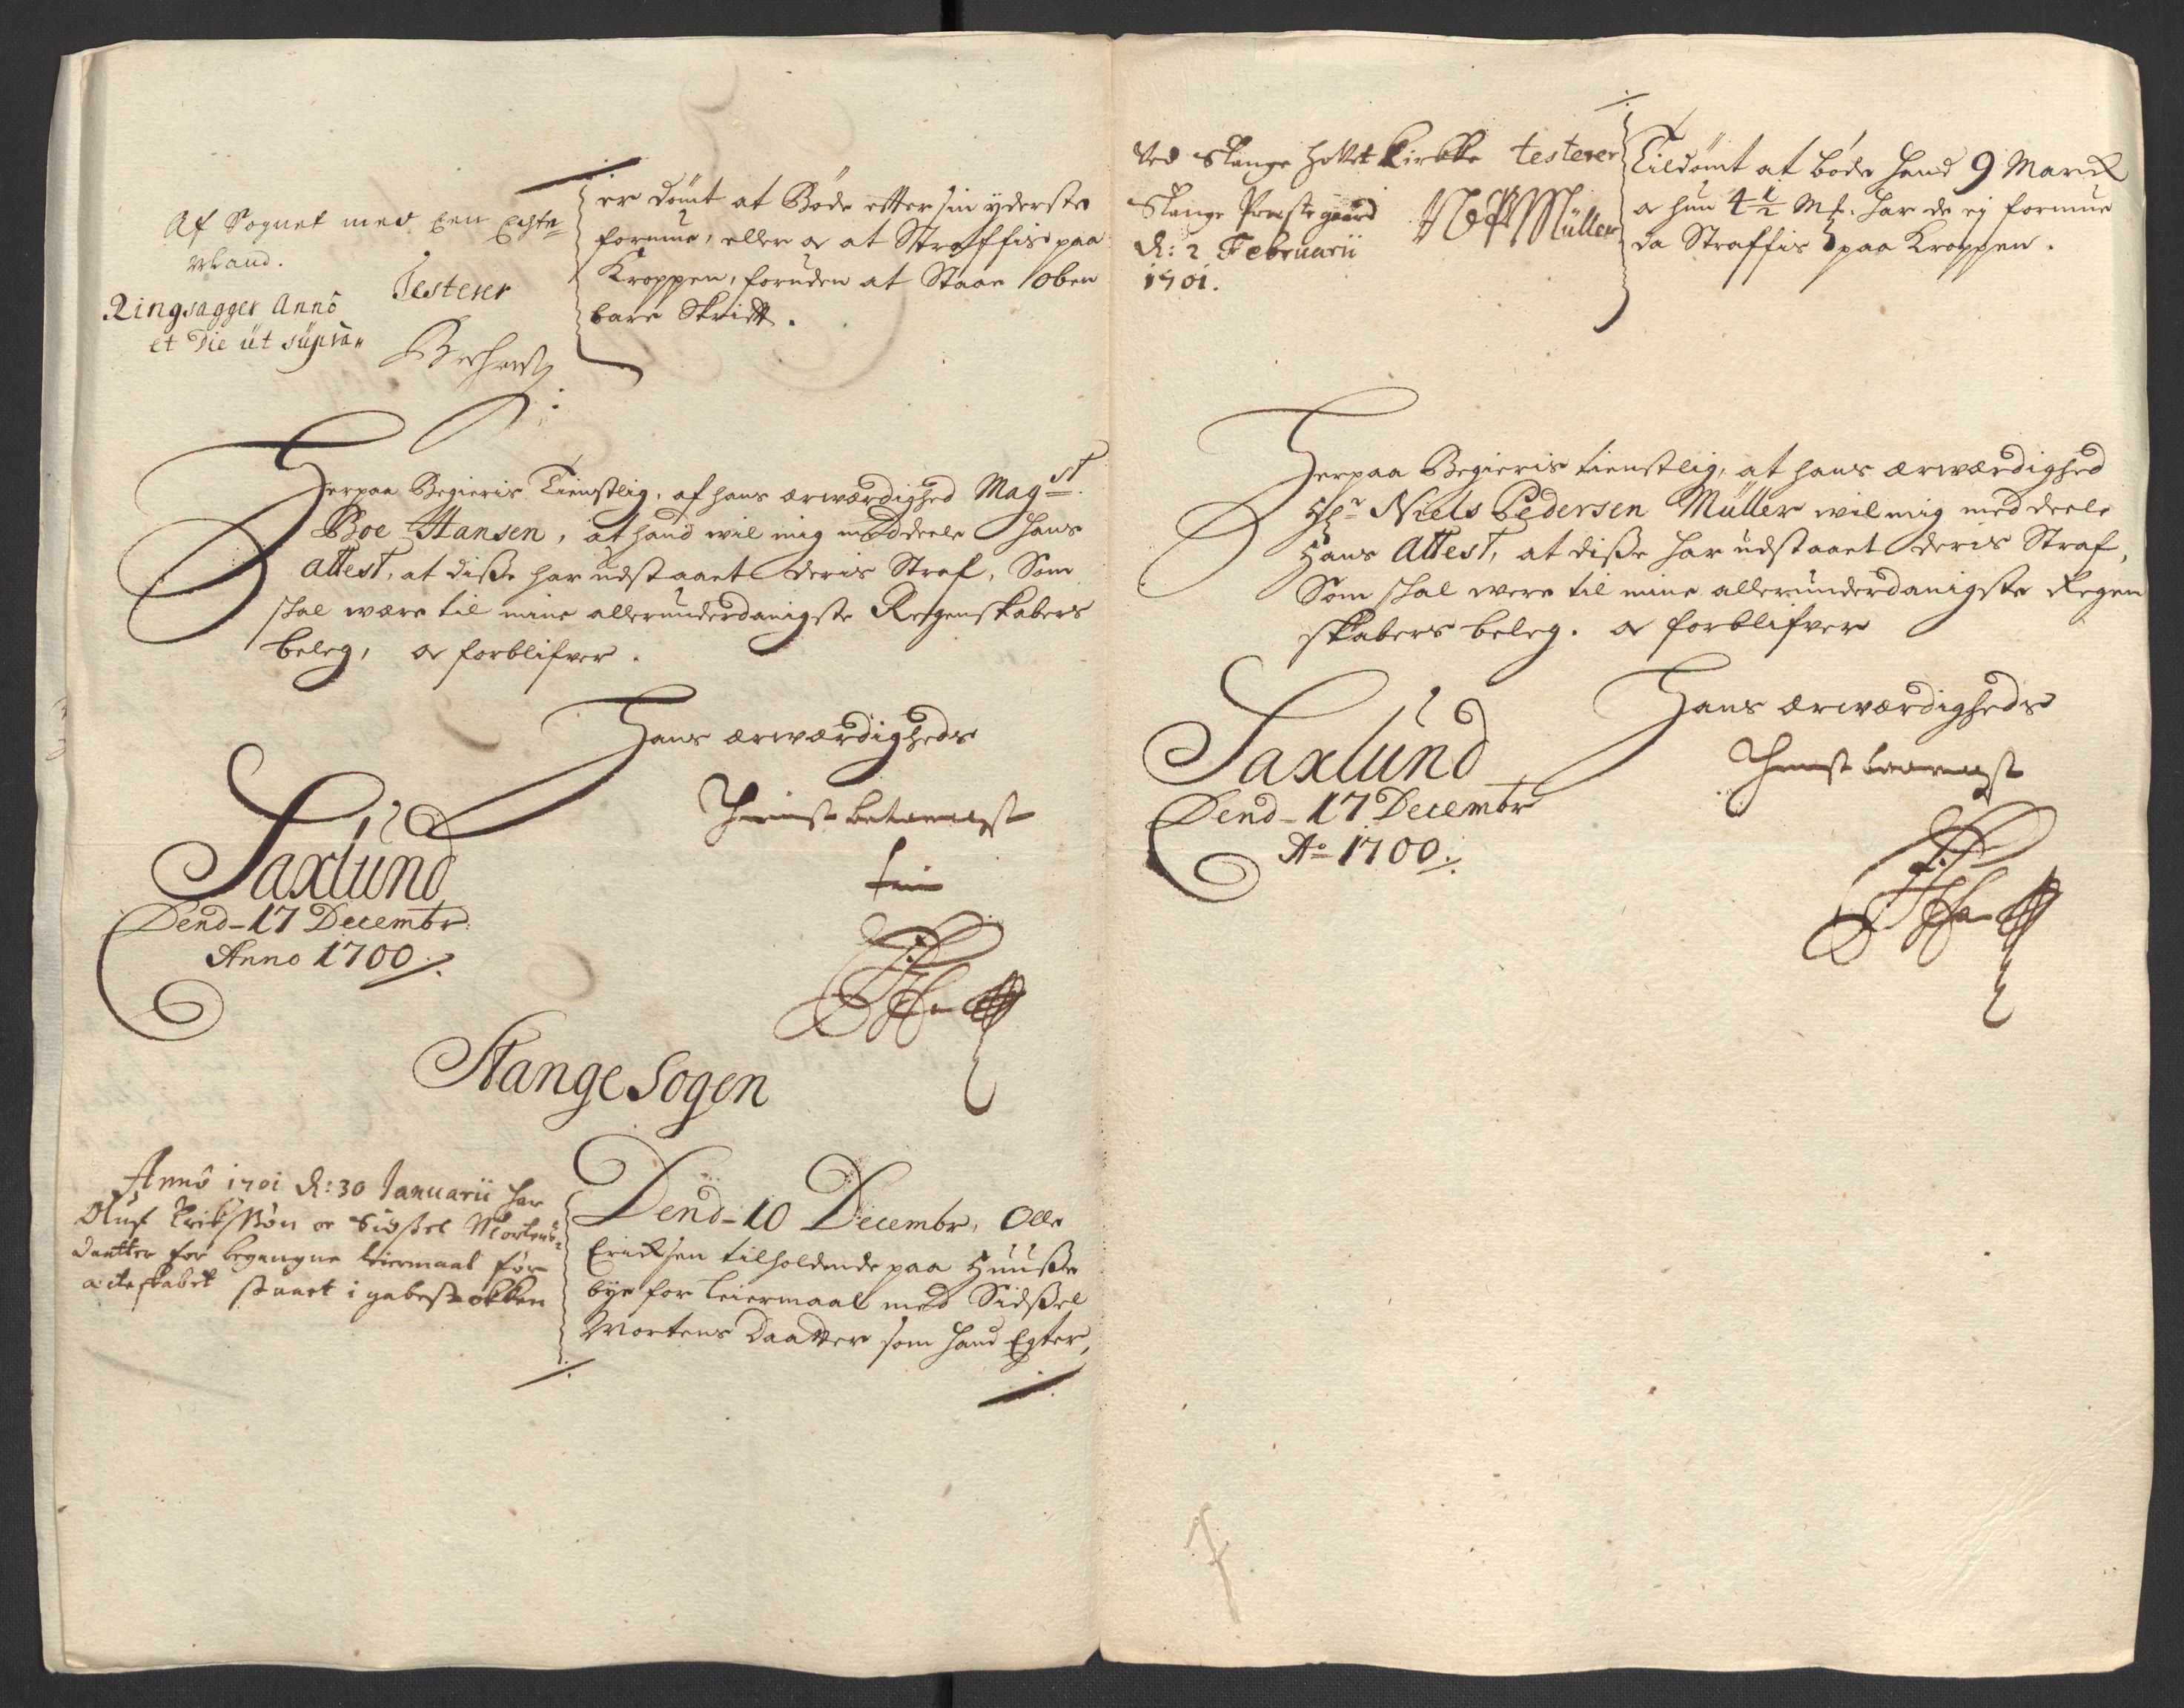 Af Sognet med een Echte
Mand.
Testerer
Ringsagger Anno
et Die ut supra
er dömt at Bøde effter sin yderste
formue, eller oc at Straffis paa
Kroppen, foruden at Staae oben
bare Skrifft.
Herpaa Begieris Tienstlig, af hans ærwærdighed Magst.
Boe Hansen, at hand wil mig meddeele hans
attest, at diße har udstaaet deris Straf, Som
skal wære til mine allerunderdanigste Regenskabers
beleg, oc forblifver.
Hans ærwærdigheds
Thienst
Saxlund
Dend 17 Decembr.
Anno 1700
Stange Sogen
Anno 1701 d: 30 Januarii har
Oluf Erikssøn oc Sidsel Mortens
daatter for begangne leiermaal før
ækteskabet staaet i gabestokken
Dend 10 Decembr, Olle
Ericksen tilholdende paa Huuße
bye for leiermaal med Sidßel
Mortens Daatter som hand Egter,
ved Stange hovet Kirkke testerer
Stange Præstegaard
d: 2 Februarii
1701.
N P Müller
Tildömt at bøde hand 9 Marck
oc hun 4 1/2 Mk. har de ej formue
da Straffis paa Kroppen.
Herpaa Begieris tienstlig, at hans ærwærdighed
Hr Niels Pedersen Müller wil mig meddeele
Hans Attest, at diße har udstaaet deris Straf,
Som skal were til mine allerunderdanigste Regen
skabers beleg. oc forblifver
Hans ærwærdigheds
Thienst
Saxlund
Dend 17 Decembr
Ao 1700.